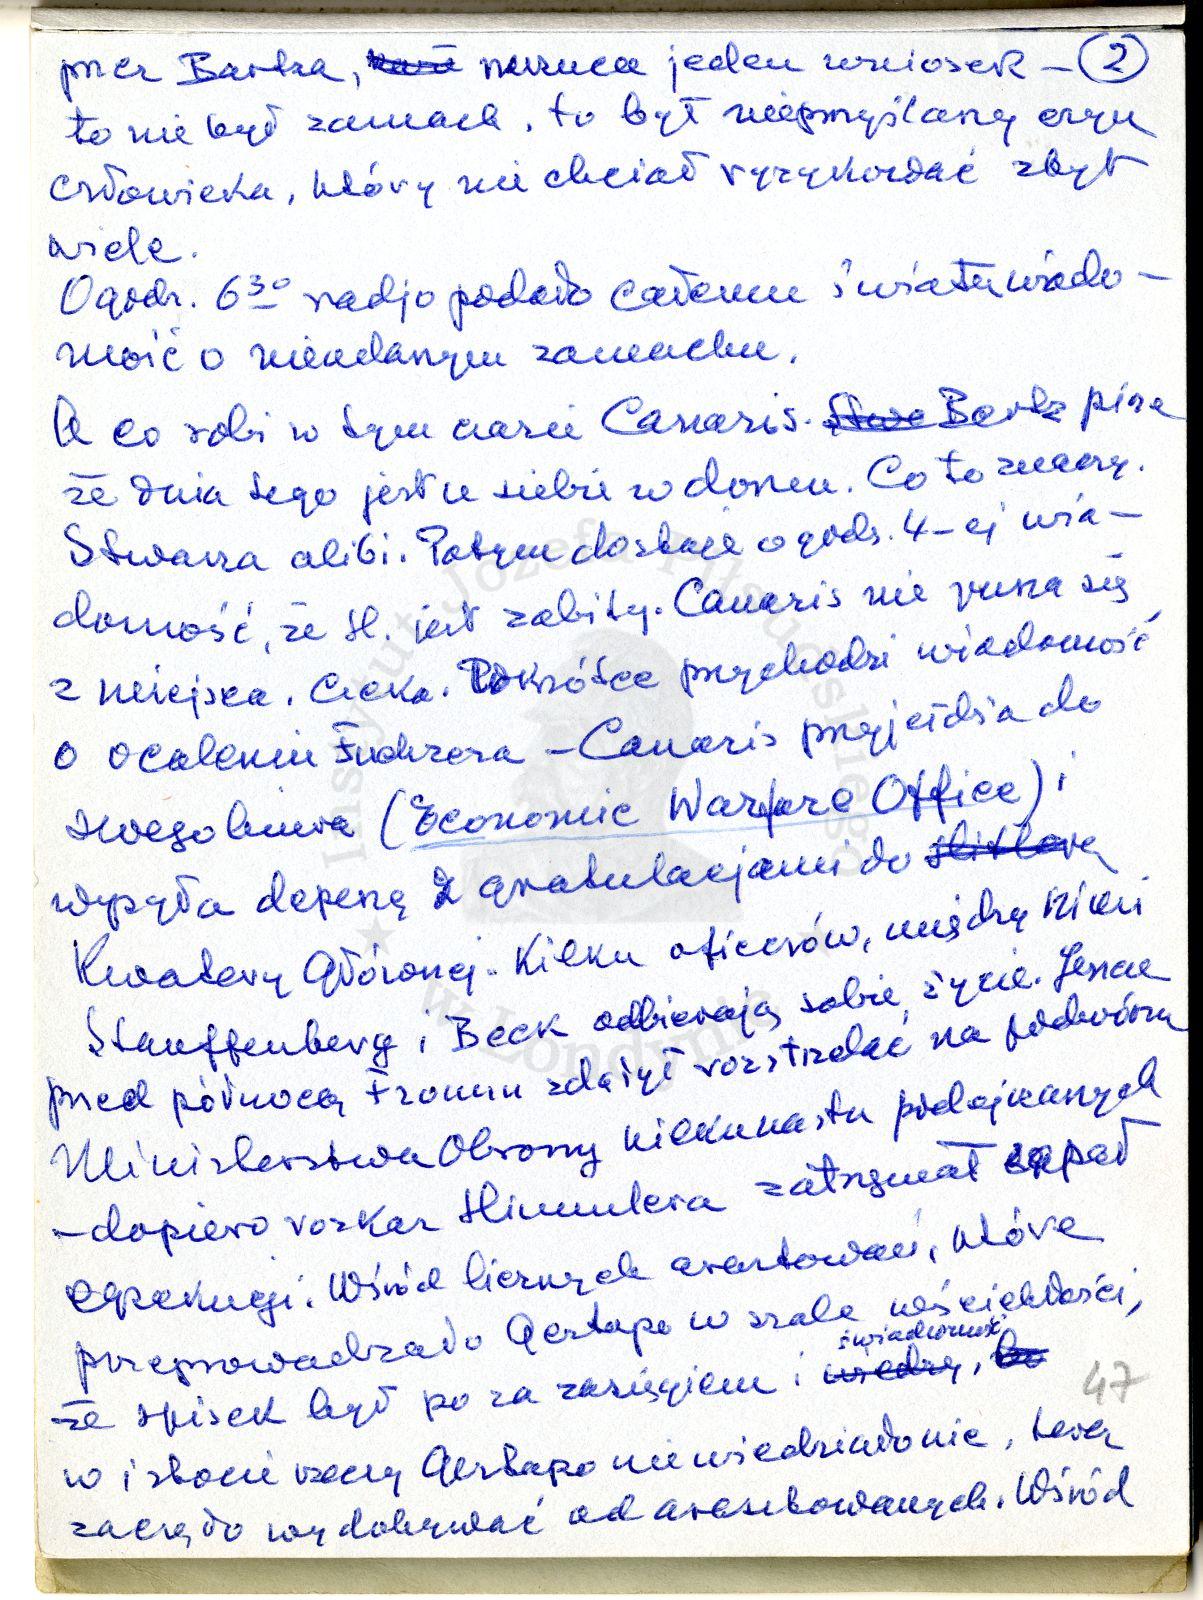 przez Bartza, nasuwa jeden wniosek – (2)
to nie był zamach, to był nieprzmyślany czyn
człowieka, który nie chciał ryzykować zbyt
wiele.
O godz. 6³⁰ radjo podało całemu światu wiado-
mość o nieudanym zamachu.
A co robi w tym czasie Canaris. Bartz pisze
że dnia tego jest u siebie w domu. Co to znaczy.
Stwarza alibi. Potym dostaje o godz. 4-ej wia-
domość, że H. jest zabity. Canaris nie rusza się
z miejsca. Czeka. Wkrótce przychodzi wiadomość
o ocaleniu Fuhrera – Canaris przyjeżdża do
swego biura (Economic Warfare Office) i
wysyła depeszę z gratulacjami do Hitlera
Kwatery Głównej. Kilku oficerów, między nimi
Stauffenberg i Beck odbierają sobie życie. Jeszcze
przed północą Fromm zdążył rozstrzelać na podwórzu
Ministerstwa Obrony kilkunastu podejrzanych
– dopiero rozkaz Himmlera zatrzymał zapał
egzekucji. Wśród licznych aresztowań, które
przeprowadzało Gestapo w szale wściekłości,
świadomości
że spisek był po za zasięgiem i wiedzy,
w istocie rzeczy Gestapo nie wiedziało nic, teraz
zaczęło wydobywać od aresztowanych. Wśród
47
Instytut Józefa Piłsudskiego
w Londynie